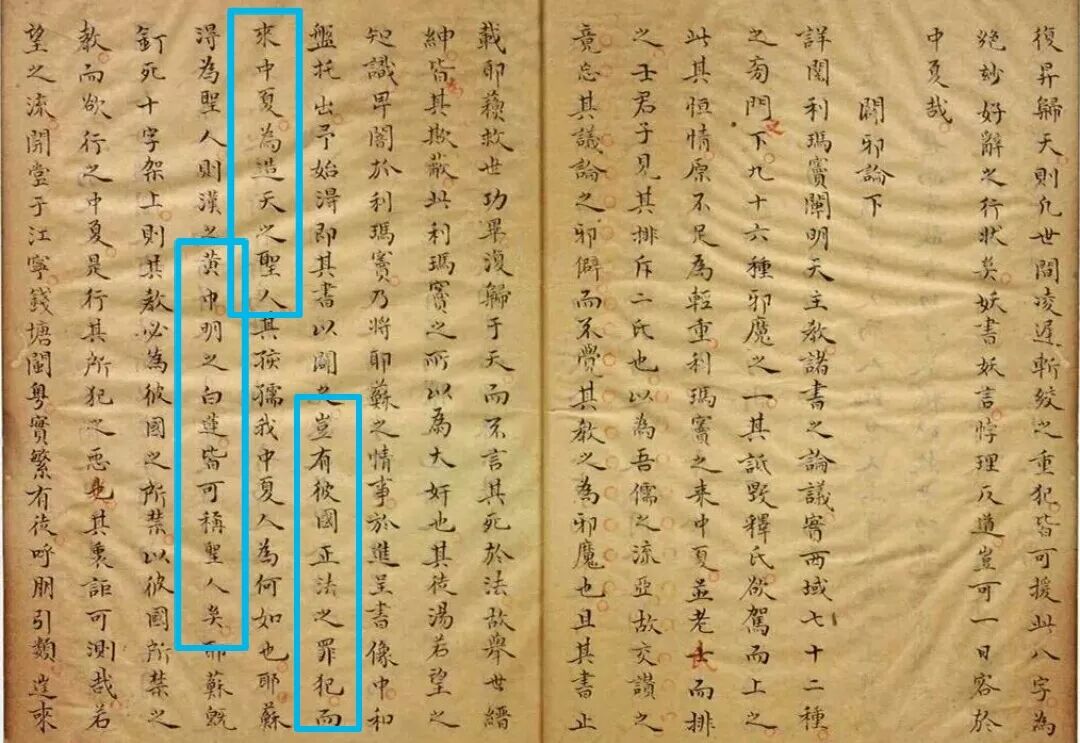 復昇歸天則凡世間凌遲斬絞之重犯皆可援此八字為
絕妙好辭之行狀矣妖書妖言悖理反道豈可一日容於
中夏哉
闢邪論下
詳閱利瑪竇闡明天主教諸書之論議實西域七十二種
之旁門下九十六種邪魔之一其詆毀釋氏欲駕而上之
此其恒情原不足為輕重利瑪竇之来中夏並老氏而排
之士君子見其排斥二氏也以為吾儒之流亞故交讚之
竟忘其議論之邪僻而不覺其教之為邪魔也且其書止
載耶穌救世功畢復歸于天而不言其死於法故舉世縉
紳皆為其欺蔽此利瑪竇之所以為大奸也其徒湯若望之
知識卑闇於利瑪竇乃將耶蘇之情事於進呈書像中和
盤托出予始得即其書以闢之豈有彼國正法之罪犯而
來中夏為造天之聖人其孩孺我中夏人為何如也耶蘇
得為聖人則漢之黃巾明之白蓮皆可稱聖人矣耶蘇既
釘死十字架上則其教必為彼國之所禁以彼國所禁之
教而欲行之中夏是行其所犯之惡也其衷詎可測哉若
望之流開堂于江寧錢塘閩粵實繁有徒呼朋引類往來